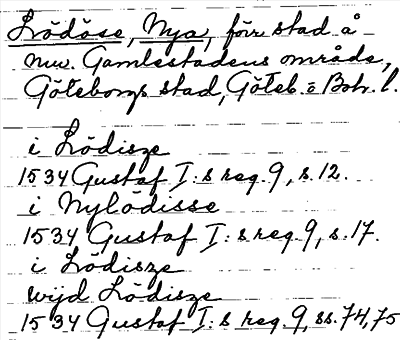 Lödöse, Nya, förr stad å
nuv. Gamlestadens område,
Göteborgs stad, Göteb. o Boh. l.
i Lödisze
1534 Gustaf I:s reg. 9, s. 12.
i Nylödisse
1534 Gustaf I:s reg. 9, s. 17.
i Lödisze
wijd Lödisze
1534 Gustaf I:s reg. 9, ss. 74, 75